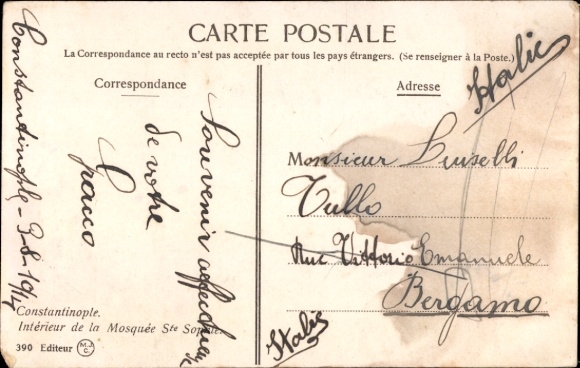 CARTE POSTALE
La Correspondance au recto n'est pas acceptée par tous les pays étrangers. (Se renseigner à la Poste.)
Correspondance
Adresse
Constantinople 3-8-1914
Souvenir affectueux
de votre
Italie
Monsieur Luiselli
Tullo
Rue Vittorio Emanuele
Bergamo
Italie
Constantinople.
Intérieur de la Mosquée Ste Sophie.
390 Editeur M.J.C.